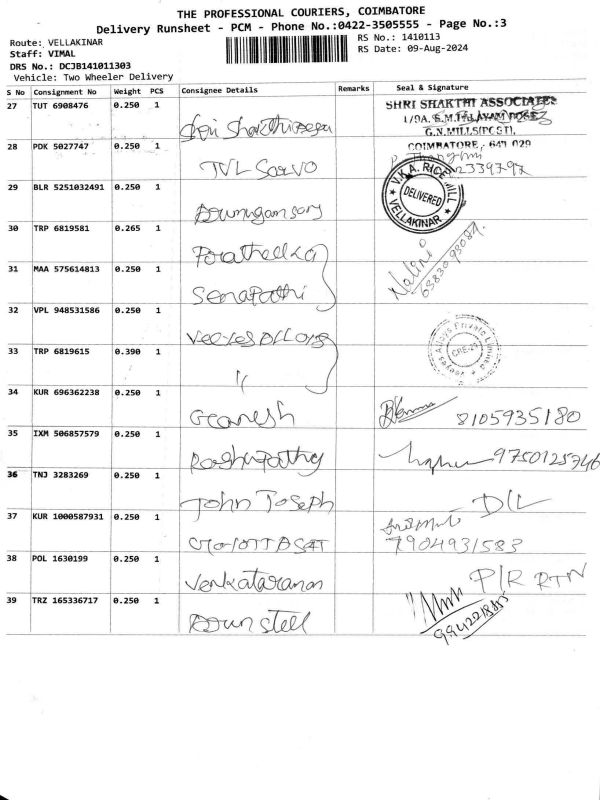 THE PROFESSIONAL COURIERS, COIMBATORE
Delivery Runsheet - PCM - Phone No.:0422-3505555 - Page No.:3
Route: VELLAKINAR
RS No.: 1410113
Staff: VIMAL
RS Date: 09-Aug-2024
DRS No.: DCJB141011303
Vehicle: Two Wheeler Delivery
S No Consignment No Weight PCS Consignee Details Remarks Seal & Signature
27 TUT 6908476 0.250 1
SHRI SHAKTHI ASSOCIATES
G.N.MILLS(POST),
COIMBATORE, 641 029
28 PDK 5027747 0.250 1 TVL Saravo
2339797
29 BLR 5251032491 0.250 1
V.K.A. RICE MILL
DELIVERED
VELLAKINAR
30 TRP 6819581 0.265 1
31 MAA 575614813 0.250 1 Senapathi
Nalini
32 VPL 948531586 0.250 1
Alloys Private Limited
CBE-29
33 TRP 6819615 0.390 1 "
34 KUR 696362238 0.250 1 Ganesh
8105935180
35 IXM 506857579 0.250 1 Raghupathy
9750125746
36 TNJ 3283269 0.250 1 John Joseph D/L
37 KUR 1000587931 0.250 1
7904931583
38 POL 1630199 0.250 1 Venkataraman P/R RTN
39 TRZ 165336717 0.250 1 Arun steel